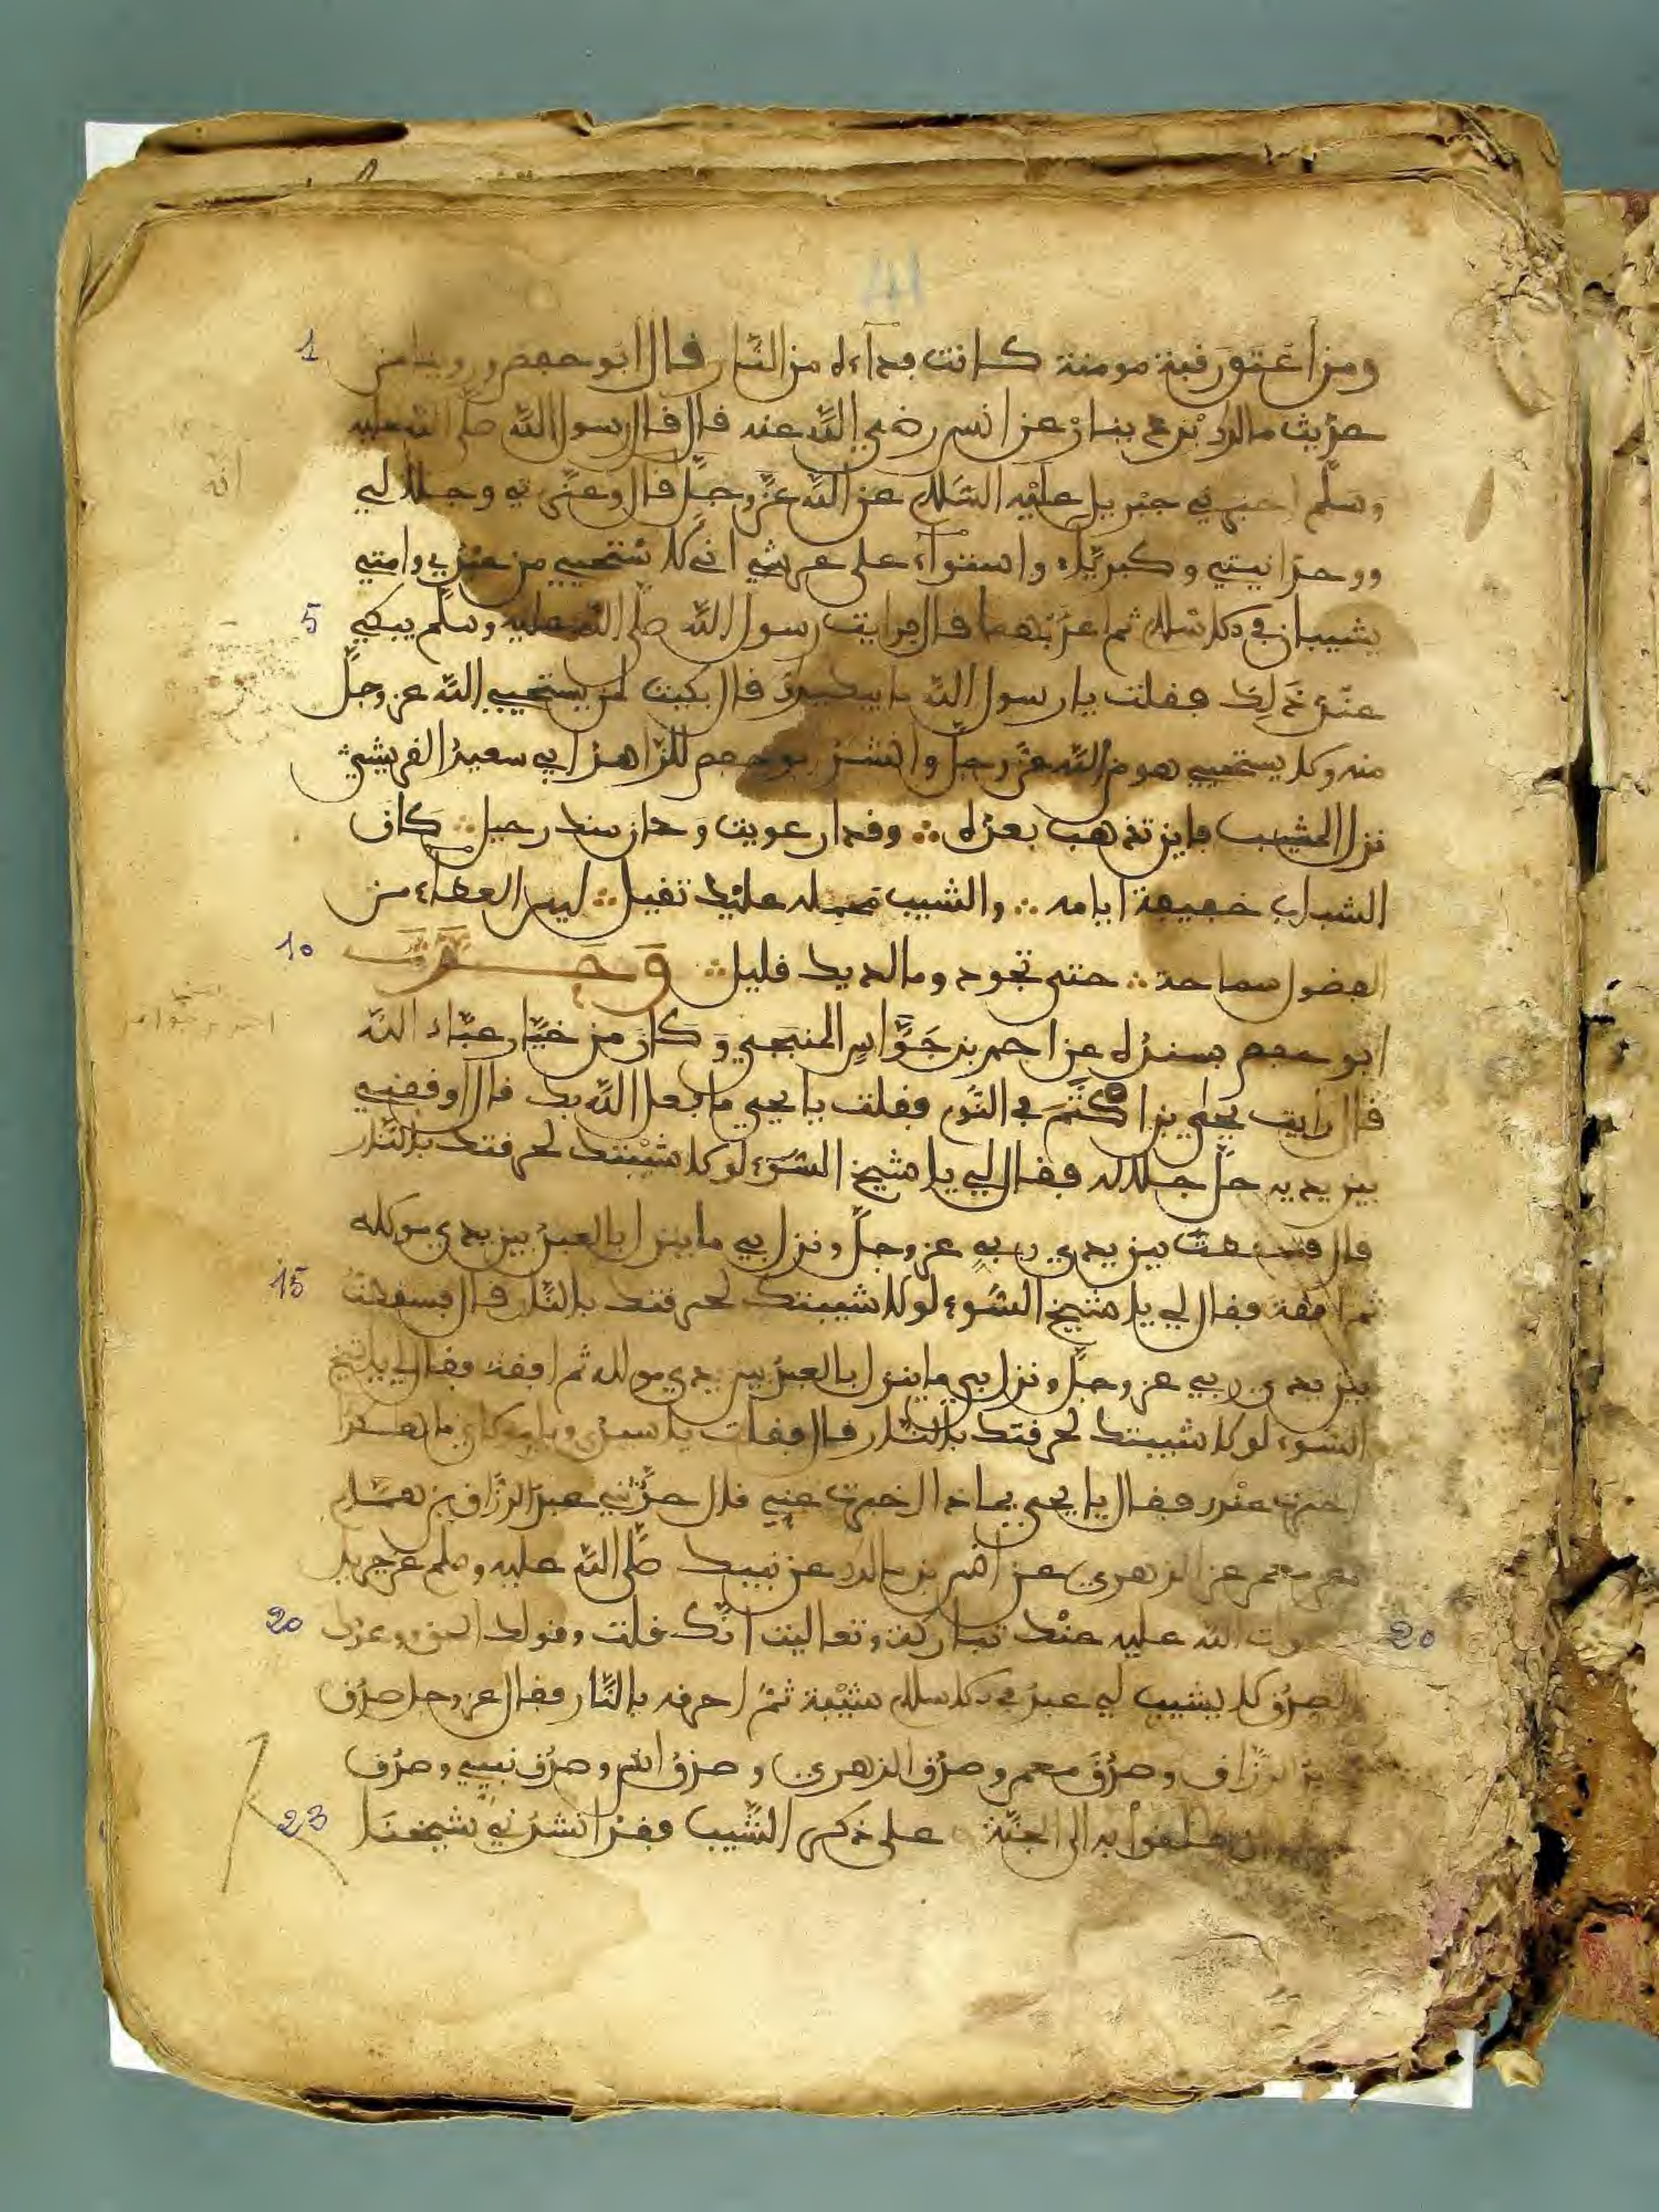 41
1 ومن اعتق رقبة مومنة كانت فداءه من النار قال ابو حفص وروينا من
حديث مالك بن دينار عن انس رضي الله عنه قال قال رسول الله صلى الله عليه
وسلم اخبرني جبريل عليه السلام عن الله عز وجل قال وعزتي وجلالي
ووحدانيتي وكبرياء واستواء على عرشي اني لاستحيي من عبدي وامتي
5 يشيبان في الاسلام ثم اعذبهما قال فرايت رسول الله صلى الله عليه وسلم يبكي
عند ذلك فقلت يا رسول الله ما يبكيك قال بكيت لمن يستحيي الله عز وجل
منه ولا يستحيي هو من الله عز وجل وانشد ابو حفص للزاهد ابي سعيد القرشي
نزل المشيب فاين تذهب بعده ∴ وقد ارعويت وحان منك رحيل ∴ كان
الشباب خفيفة ايامه ∴ والشيب محمله عليك ثقيل ∴ ليس العطاء من
10 الفضول سماحة ∴ حتى تجود وما لديك قليل ∴
ابو حفص بسنده عن احمد بن جواس المنبجي وكان من خيار عباد الله
قال رايت يحيى بن اكثم في النوم فقلت يا يحيى ما فعل الله بك قال اوقفني
بين يديه جل جلاله فقال لي يا شيخ السوء لولا شيبتك لحرقتك بالنار
قال فسقطت بين يدي ربي عز وجل ونزل بي ما ينزل بالعبد بين يدي مولاه
15 ثم افقت فقال لي يا شيخ السوء لولا شيبتك لحرقتك بالنار قال فسقطت
بين يدي ربي عز وجل ونزل بي ما ينزل بالعبد بين يدي مولاه ثم افقت فقال لي يا شيخ
السوء لولا شيبتك لحرقتك بالنار قال فقلت يا سيدي ويا مولاي ما هكذا
اخبرت عنك فقال يا يحيى بماذا اخبرت عني قال حدثني عبد الرزاق بن همام
عن معمر عن الزهري عن انس بن مالك عن نبيك صلى الله عليه وسلم عن جبريل
20 الله عليه عنك تباركت وتعاليت انك قلت وقولك الحق ووعدك 20
الصدق لا يشيب لي عبد في الاسلام شيبة ثم احرقه بالنار فقال عز وجل صدق
الرزاق وصدق معمر وصدق الزهري وصدق انس وصدق نبيي وصدق
23 انطلقوا به الى الجنة على ذكر الشيب وقد انشدني شيخنا
انه
احمد بن جواس